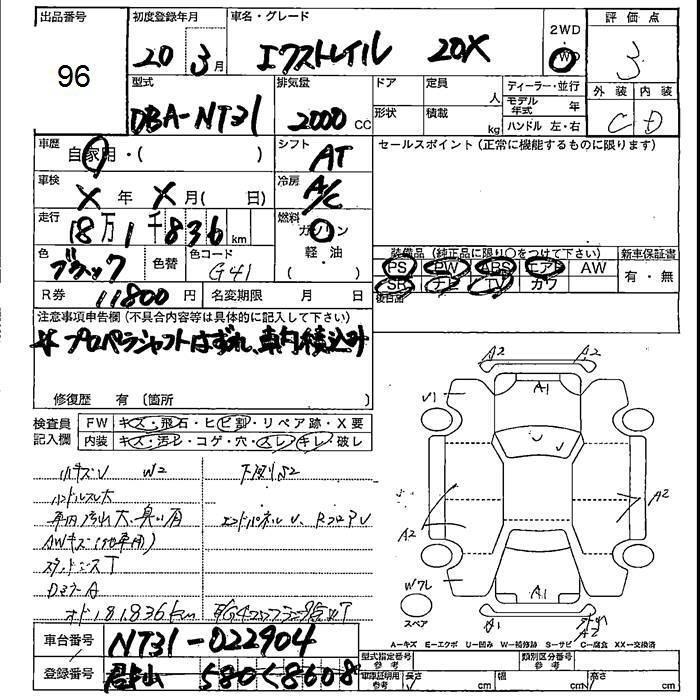 出品番号
96
初度登録年月
20 3月
車名・グレード
エクストレイル 20X
2WD
4WD
評価点
3
外装 内装
C D
型式
DBA-NT31
排気量
2000 CC
ドア
形状
定員 人
積載 kg
ディーラー・並行
モデル年式 年
ハンドル 左・右
車歴
自家用・( )
シフト
AT
セールスポイント(正常に機能するものに限ります)
車検
X 年 X 月( 日)
冷房
A/C
走行
18万1千836 km
燃料
ガソリン
軽・油
( )
色
ブラック
色替
色コード
G41
装備品(純正品に限り○をつけて下さい)
PS PW ABS エアB AW
SR ナビ TV カワ
後日品
新車保証書
有・無
R券 11800 円
名変期限 月 日
注意事項申告欄(不具合内容等は具体的に記入して下さい)
プロペラシャフトはずれ、車内積込み
修復歴 有(箇所 )
検査員記入欄
FW キズ・飛石・ヒビ割・リペア跡・X要
内装 キズ・汚レ・コゲ・穴・スレ・キレ・破レ
ハキズU W2
ハンドルスレ大
車内汚れ大、臭い有
AWキズ
オド181,836km
エンドパネルU、RフロアU
A2 A2
A1
A2
A2
W7L
スペア
A1
A1
A2
A=キズ E=エクボ U=凹み W=補修跡 S=サビ C=腐食 XX=交換済
車台番号
NT31-022904
登録番号
郡山 580く8608
型式指定番号 参考
類別区分番号 参考
車庫証明用 参考
長さ cm
幅 cm
高さ cm